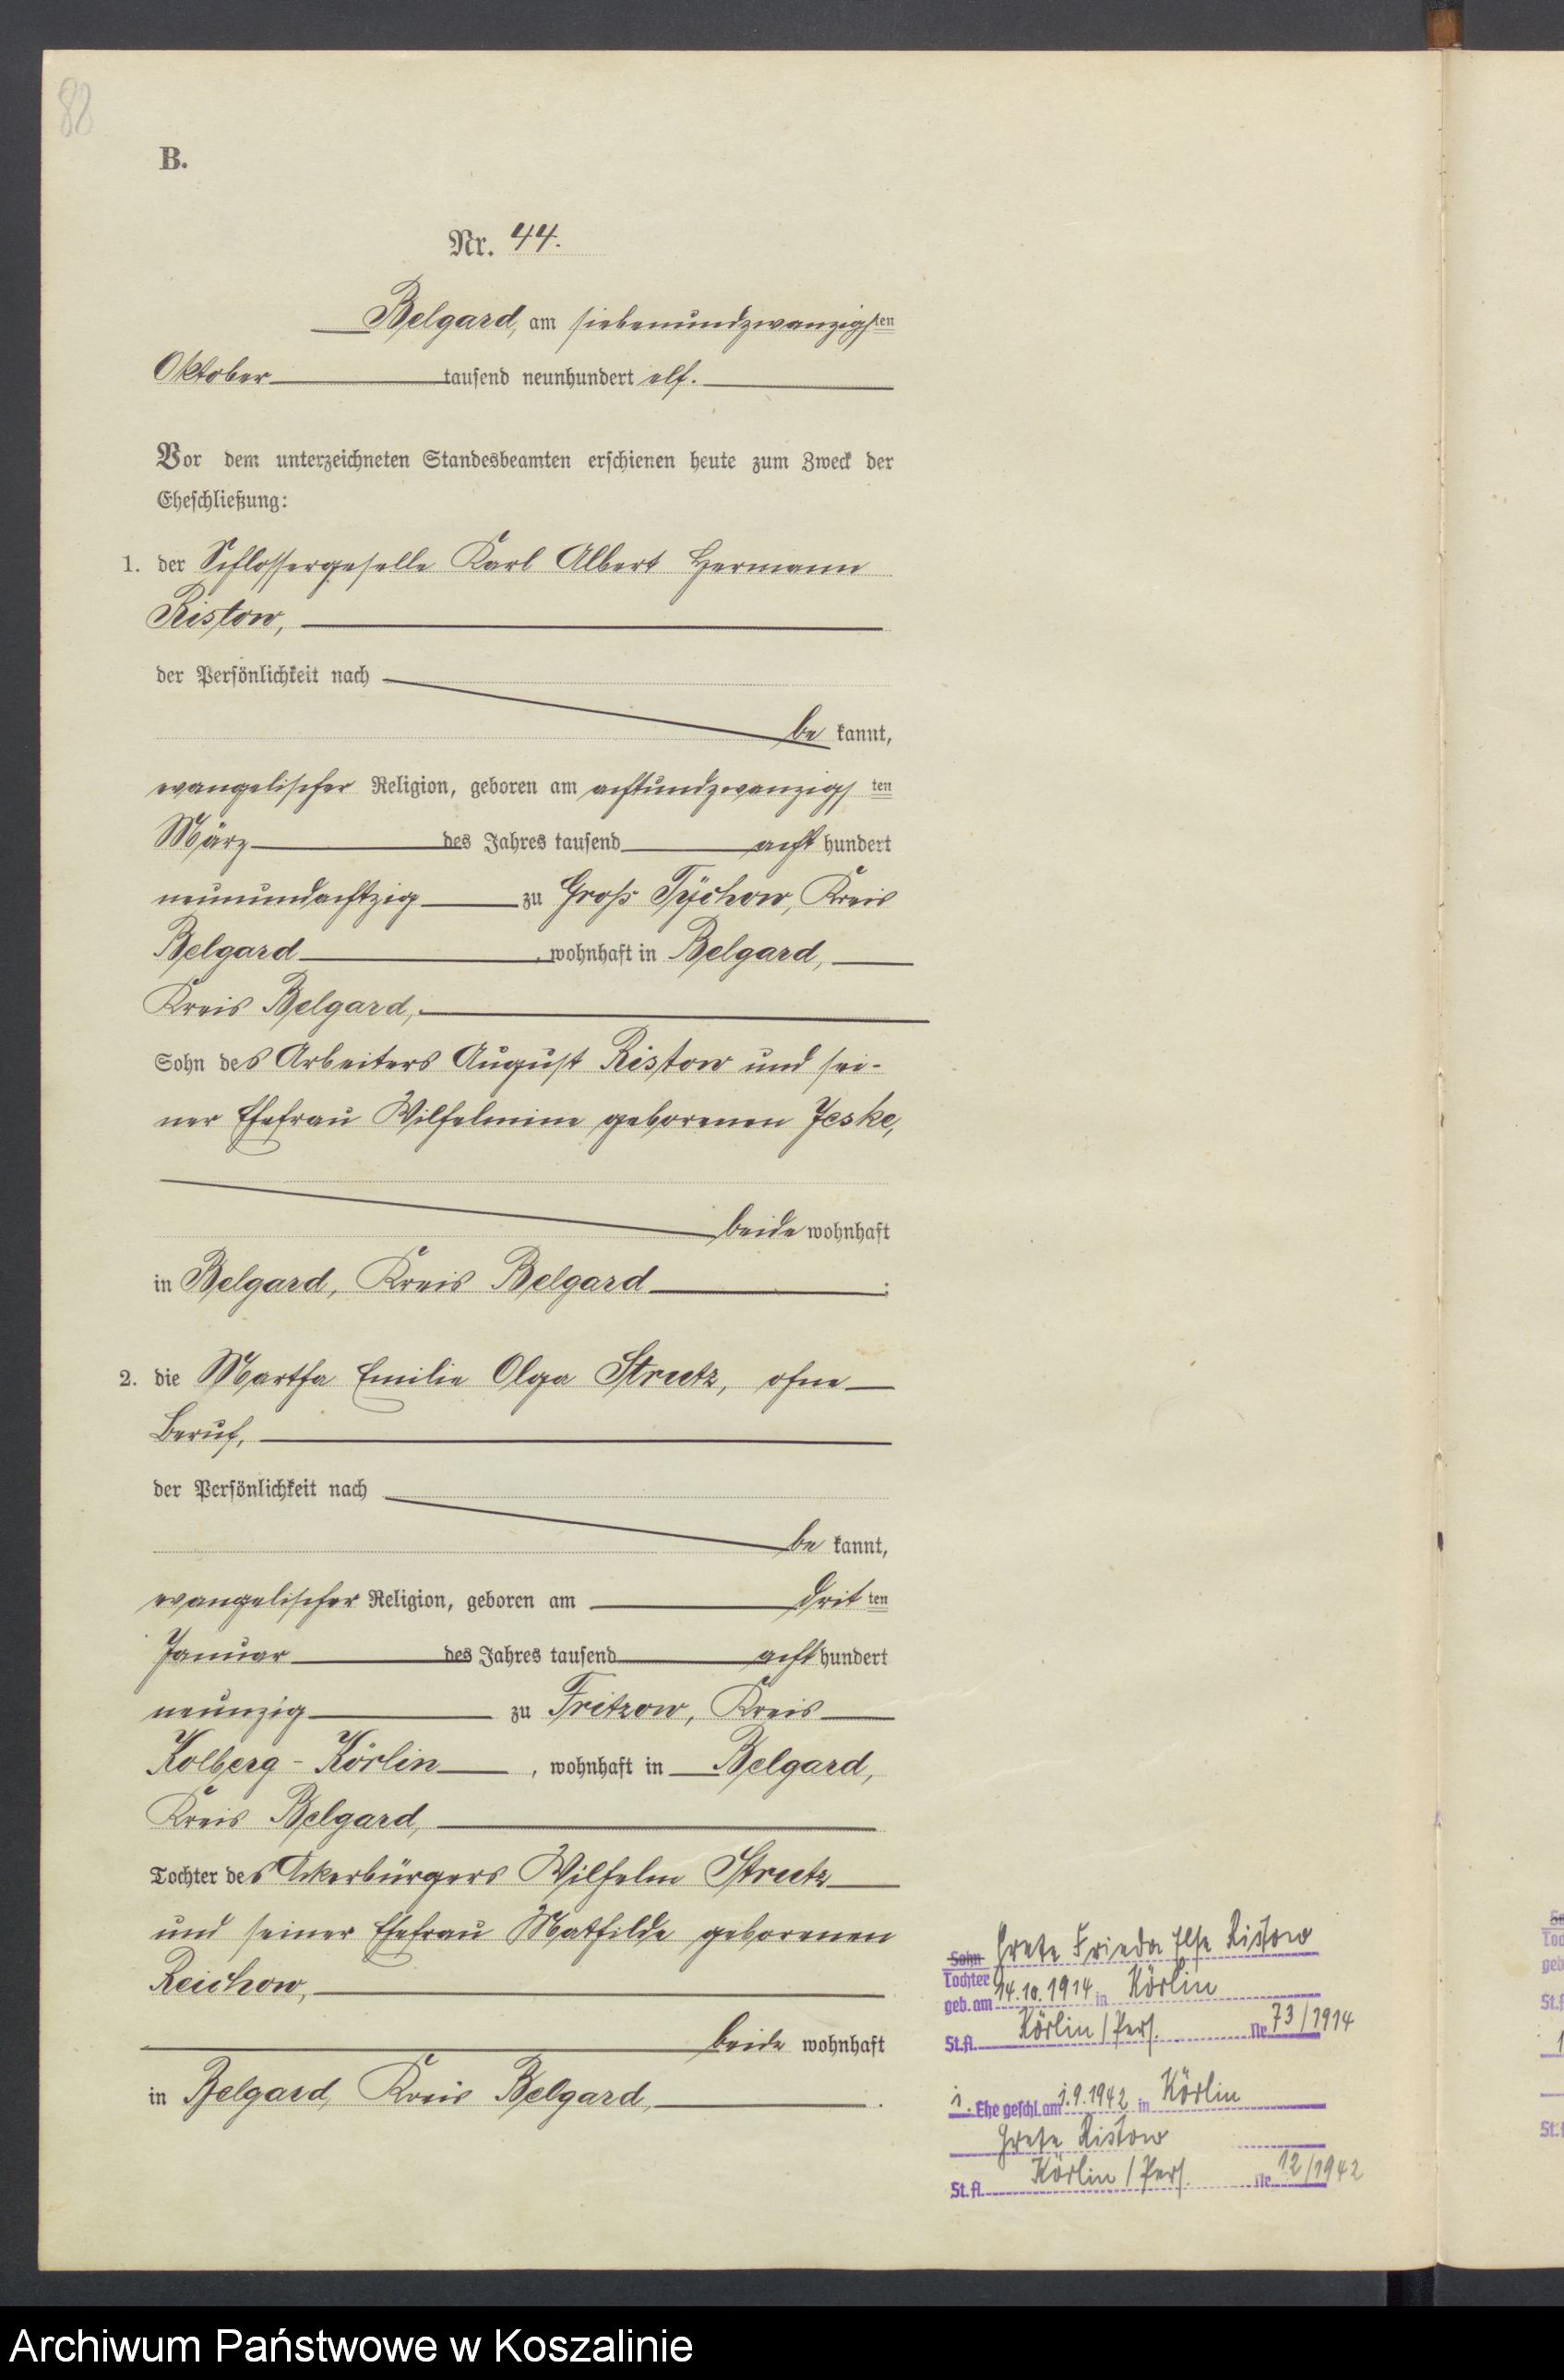 88
B.
Nr. 44.
Belgard, am siebenundzwanzigsten
Oktober tausend neunhundert elf.
Vor dem unterzeichneten Standesbeamten erschienen heute zum Zweck der
Eheschließung:
1. der Schlossergeselle Karl Albert Hermann
Ristow,
der Persönlichkeit nach
be kannt,
evangelischer Religion, geboren am achtundzwanzigs ten
März des Jahres tausend acht hundert
neunundachtzig zu Groß Tychow, Kreis
Belgard, wohnhaft in Belgard,
Kreis Belgard,
Sohn des Arbeiters August Ristow und sei-
ner Ehefrau Wilhelmine geborenen Jeske,
beide wohnhaft
in Belgard, Kreis Belgard;
2. die Martha Emilie Olga Streetz, ohne
Beruf,
der Persönlichkeit nach
be kannt,
evangelischer Religion, geboren am drit ten
Januar des Jahres tausend acht hundert
neunzig zu Fritzow, Kreis
Kolberg-Körlin, wohnhaft in Belgard,
Kreis Belgard,
Tochter des Ackerbürgers Wilhelm Streetz
und seiner Ehefrau Mathilde geborenen
Reichow,
beide wohnhaft
in Belgard, Kreis Belgard,.
Sohn Grete Frieda Else Ristow
Tochter
geb. am 14.10.1914 in Körlin
St.A. Körlin/Pers. Nr. 73/1914
1. Ehe geschl. am 1.9.1942 in Körlin
Grete Ristow
St.A. Körlin/Pers. Nr. 12/1942
Archiwum Państwowe w Koszalinie